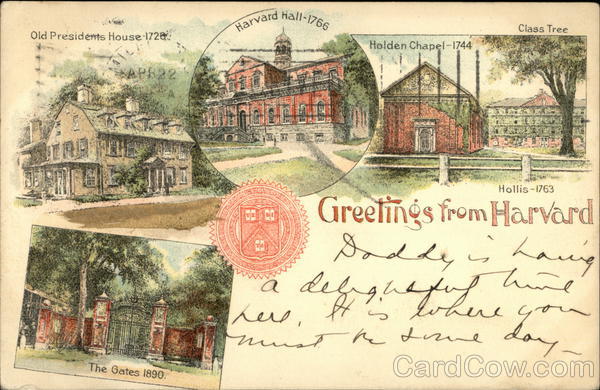 Old Presidents House-1726.
Harvard Hall-1766
Holden Chapel-1744
Class Tree
APR 22
Hollis-1763
Greetings from Harvard
Daddy is having
a delightful time
here. It is where you
must be some day—
The Gates 1890.
CardCow.com